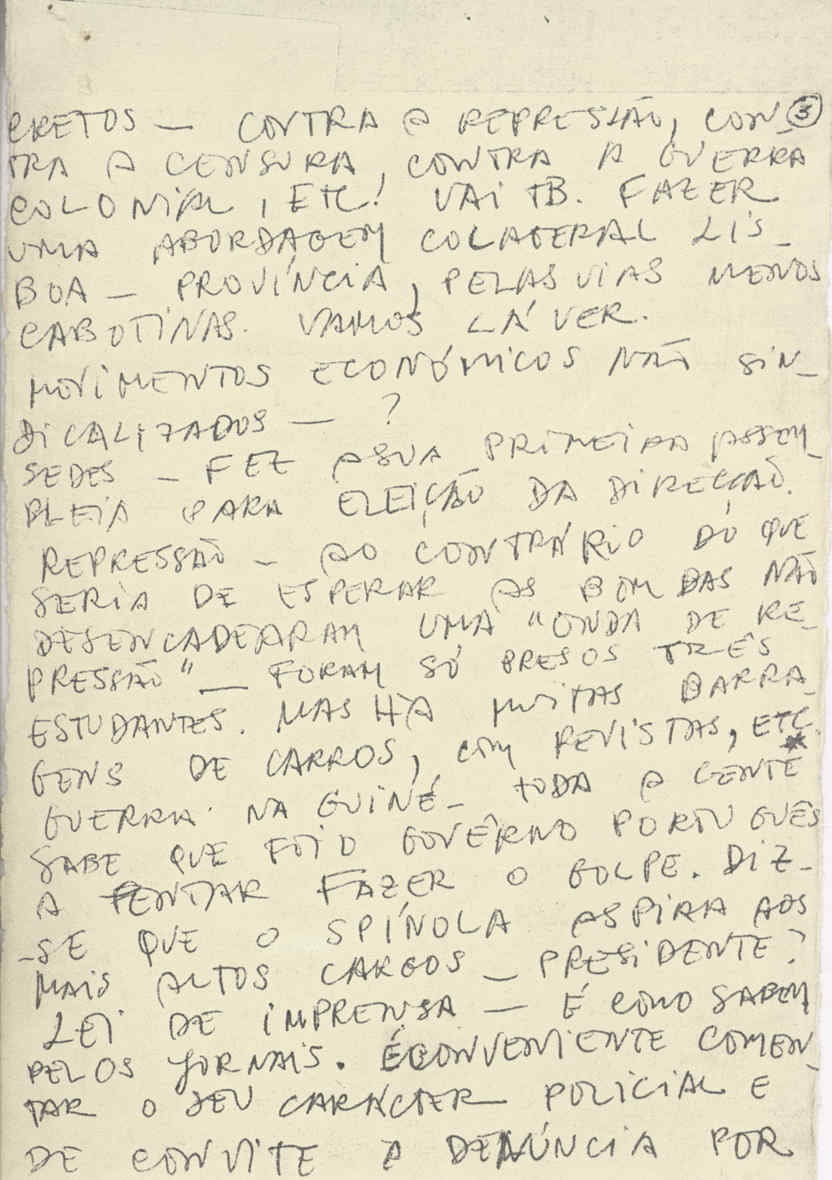 CRETOS — CONTRA A REPRESSÃO, CON- 3
TRA A CENSURA, CONTRA A GUERRA
COLONIAL, ETC! VAI TB. FAZER
UMA ABORDAGEM COLATERAL LIS-
BOA — PROVÍNCIA, PELAS VIAS MENOS
CABOTINAS. VAMOS LÁ VER.
MOVIMENTOS ECONÓMICOS NÃO SIN-
DICALIZADOS — ?
SEDES — FEZ A SUA PRIMEIRA ASSEM-
BLEIA PARA ELEIÇÃO DA DIRECÇÃO.
REPRESSÃO — AO CONTRÁRIO DO QUE
SERIA DE ESPERAR AS BOMBAS NÃO
DESENCADEARAM UMA "ONDA DE RE-
PRESSÃO" — FORAM SÓ PRESOS TRÊS
ESTUDANTES. MAS HÁ MUITAS BARRA-
GENS DE CARROS, COM REVISTAS, ETC.
GUERRA NA GUINÉ — TODA A GENTE
SABE QUE FOI O GOVÊRNO PORTUGUÊS
A TENTAR FAZER O GOLPE. DIZ-
-SE QUE O SPÍNOLA ASPIRA AOS
MAIS ALTOS CARGOS — PRESIDENTE?
LEI DE IMPRENSA — É COMO SABEM
PELOS JORNAIS. É CONVENIENTE COMEN-
TAR O SEU CARÁCTER POLICIAL E
DE CONVITE À DENÚNCIA POR